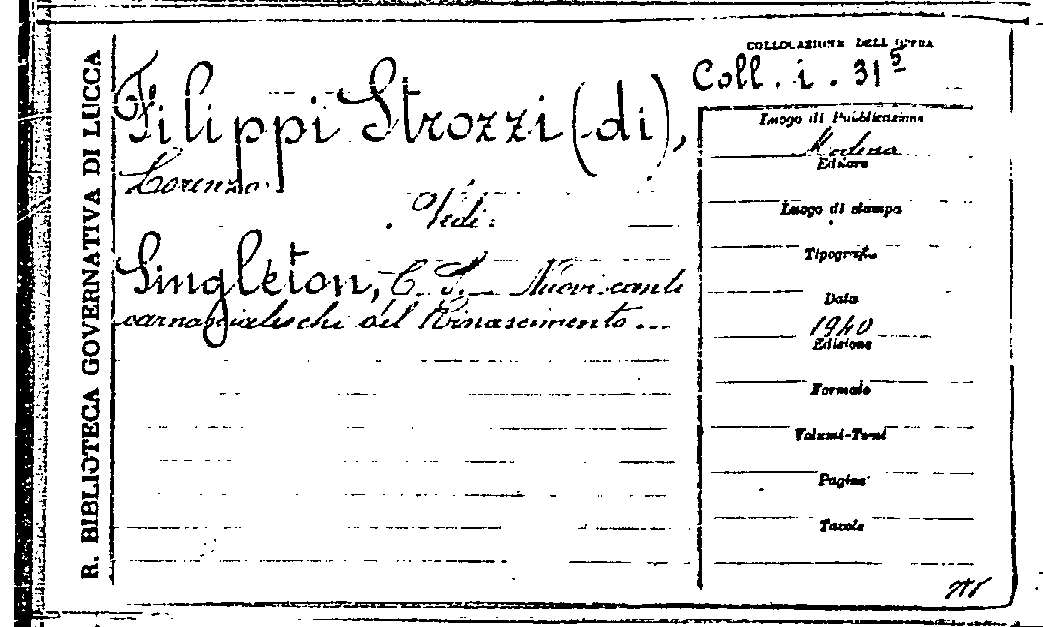 R. BIBLIOTECA GOVERNATIVA DI LUCCA
Filippi Strozzi (di),
Lorenzo.
Vedi:
Singleton, C. S. - Nuovi canti
carnascialeschi del Rinascimento...
COLLOCAZIONE DELL'OPERA
Coll. i. 31⁵
Luogo di Pubblicazione
Modena
Editore
Luogo di stampa
Tipografia
Data
1940
Edizione
Formato
Volumi-Tomi
Pagine
Tavole